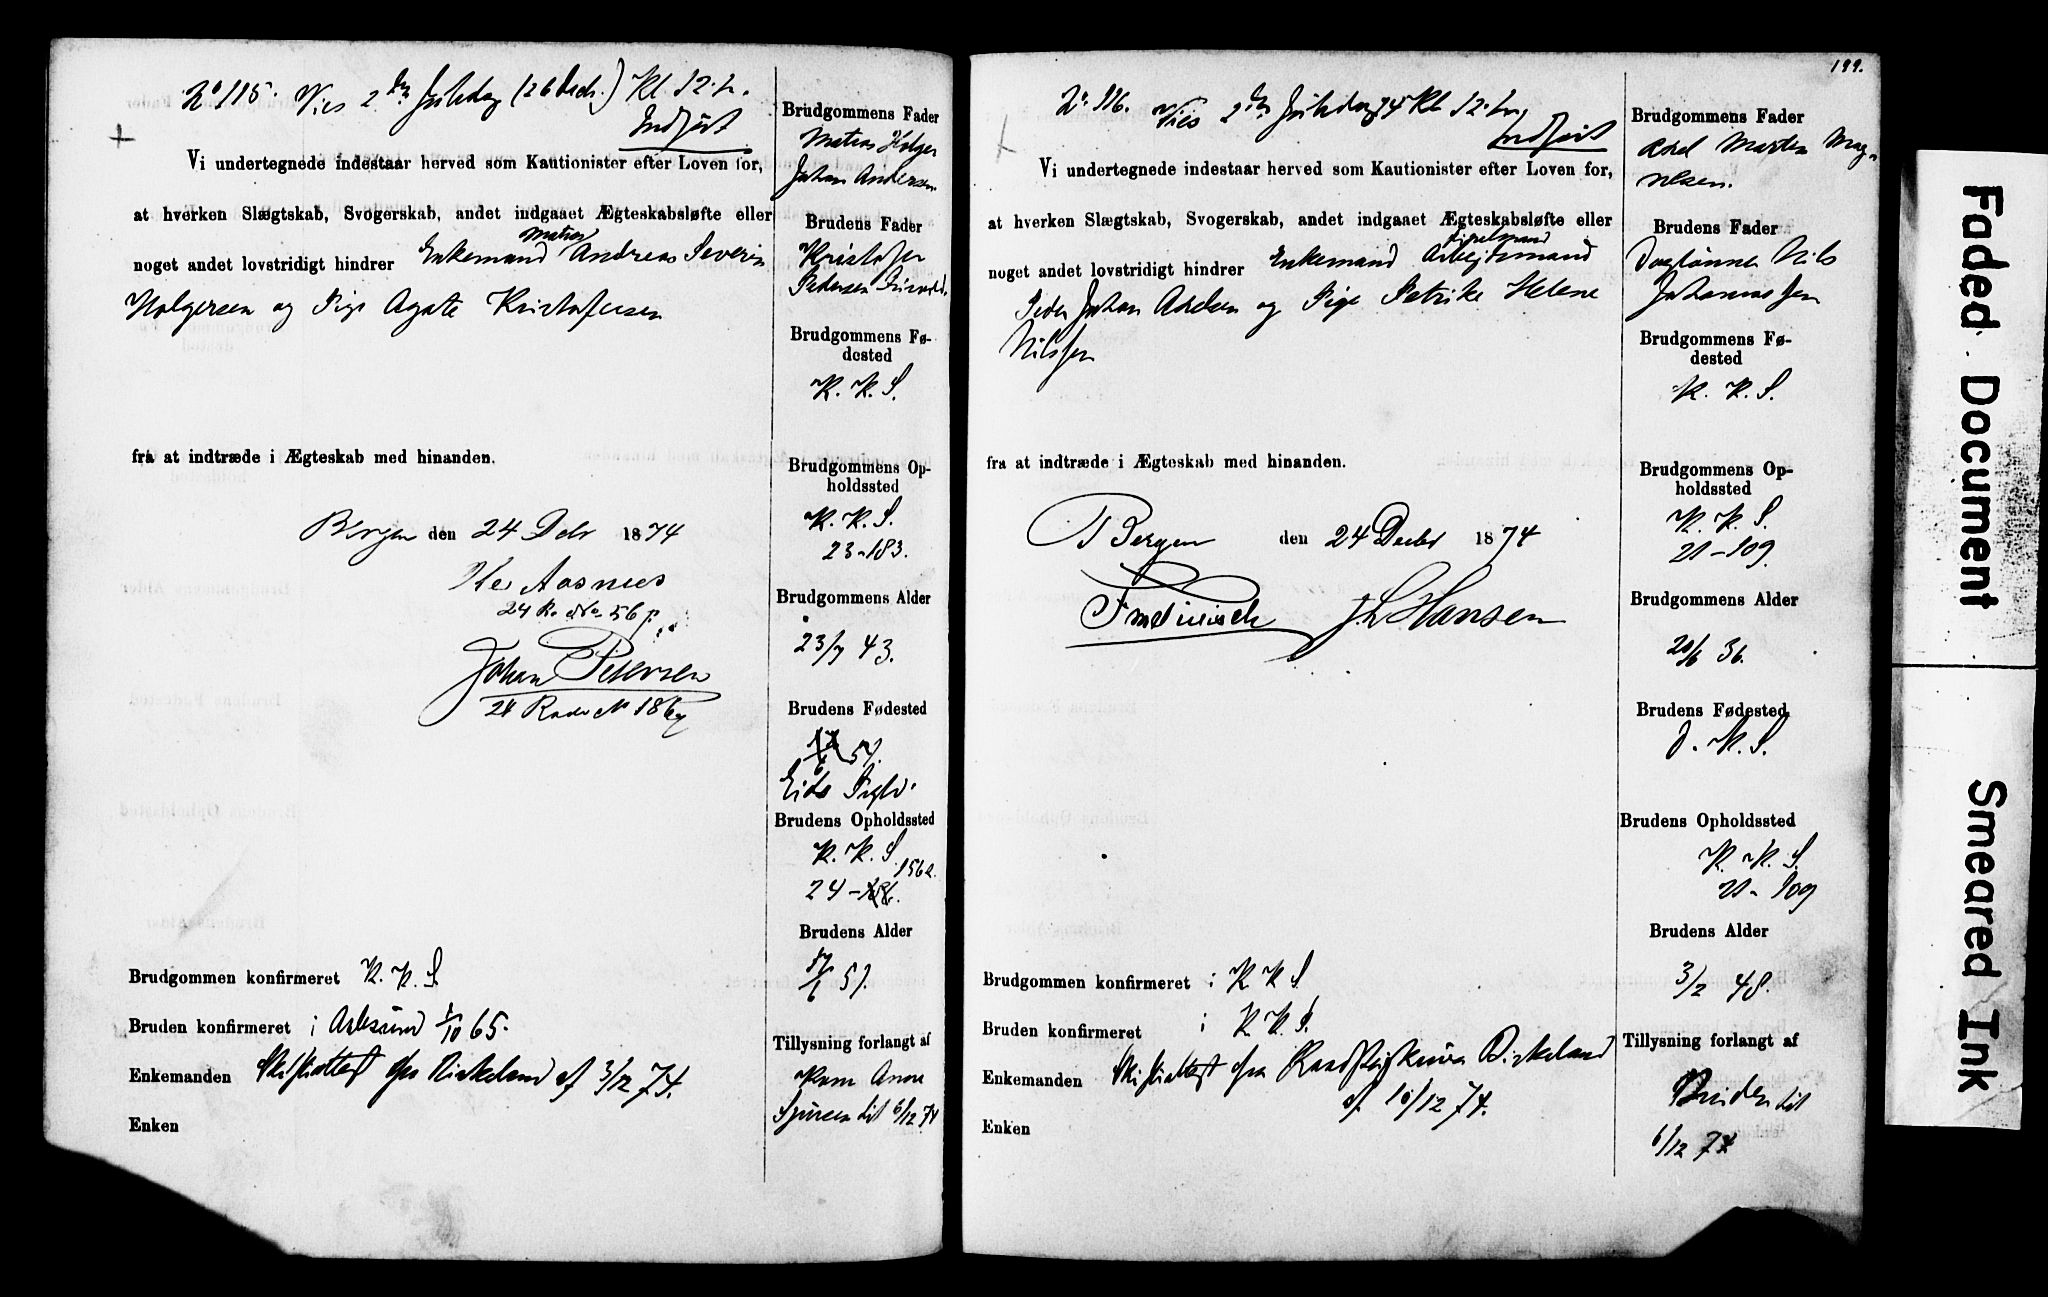 No 115. Vies 2den Juledag (26 Decbr.) Kl 12. h.
Indført
Vi undertegnede indestaar herved som Kautionister efter Loven for,
at hverken Slægtskab, Svogerskab, andet indgaaet Ægteskabsløfte eller
Matros
noget andet lovstridigt hindrer Enkemand Andreas Severin
Holgersen og Pige Agate Kristofersen
fra at indtræde i Ægteskab med hinanden.
Bergen den 24 Decbr 1874
Aasnæs
24 Rode No 56
Johan Petersen
24 Rode No 186
Brudgommen konfirmeret K. K. S.
Bruden konfirmeret i Aalesund 1/10 65.
Enkemanden Skifteattest fra Birkeland af 3/12 74.
Enken
Brudgommens Fader
Matias Holger
Johan Andersen.
Brudens Fader
Kristofer
Pedersen
Brudgommens Fø-
dested
K. K. S.
Brudgommens Op-
holdssted
K. K. S.
23-183.
Brudgommens Alder
23/7 43.
Brudens Fødested
51.
Eids
Brudens Opholdssted
K. K. S.
156a.
24 -
Brudens Alder
17/6 51.
Tillysning forlangt af
Sjursen dit 6/12 74
199.
No. 116. Vies 2den Juledag 74 Kl 12. h.
Indført
Vi undertegnede indestaar herved som Kautionister efter Loven for,
at hverken Slægtskab, Svogerskab, andet indgaaet Ægteskabsløfte eller
noget andet lovstridigt hindrer Enkemand Arbejdsmand
Peder Johan Axelsen og Pige Petrike Helene
Nilssen
fra at indtræde i Ægteskab med hinanden.
Bergen den 24 Decbr 1874
J L Hansen
Brudgommen konfirmeret i K K S.
Bruden konfirmeret i K. K. S.
Enkemanden Skifteattest fra Raadstuskriver Birkeland
af 10/12 74.
Enken
Brudgommens Fader
Axel Morten Mag-
nesen.
Brudens Fader
Daglønner Nils
Johannessen
Brudgommens Fø-
dested
K. K. S.
Brudgommens Op-
holdssted
K. K. S.
21-109.
Brudgommens Alder
20/6 36.
Brudens Fødested
D. K. S.
Brudens Opholdssted
K. K. S.
21-109
Brudens Alder
3/2 48.
Tillysning forlangt af
Bruden dit
6/12 74
Faded Document Smeared Ink